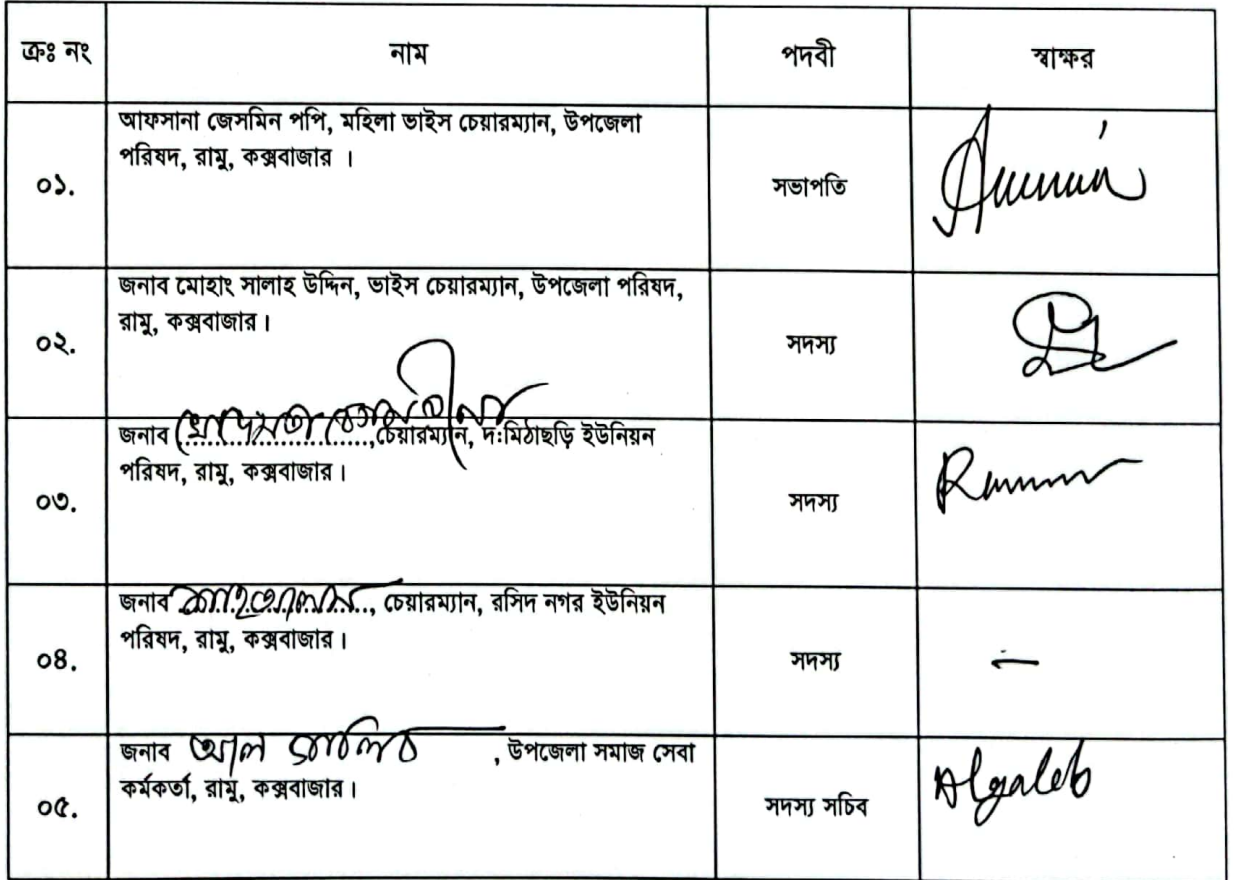 ক্রঃ নং নাম পদবী স্বাক্ষর
আফসানা জেসমিন পপি, মহিলা ভাইস চেয়ারম্যান, উপজেলা
পরিষদ, রামু, কক্সবাজার ।
০১. সভাপতি
জনাব মোহাং সালাহ উদ্দিন, ভাইস চেয়ারম্যান, উপজেলা পরিষদ,
রামু, কক্সবাজার।
০২. সদস্য
জনাব ,চেয়ারম্যান, দ:মিঠাছড়ি ইউনিয়ন
পরিষদ, রামু, কক্সবাজার।
০৩. সদস্য
জনাব , চেয়ারম্যান, রসিদ নগর ইউনিয়ন
পরিষদ, রামু, কক্সবাজার।
০৪. সদস্য –
জনাব আল গালিব , উপজেলা সমাজ সেবা
কর্মকর্তা, রামু, কক্সবাজার।
০৫. সদস্য সচিব Algaleb